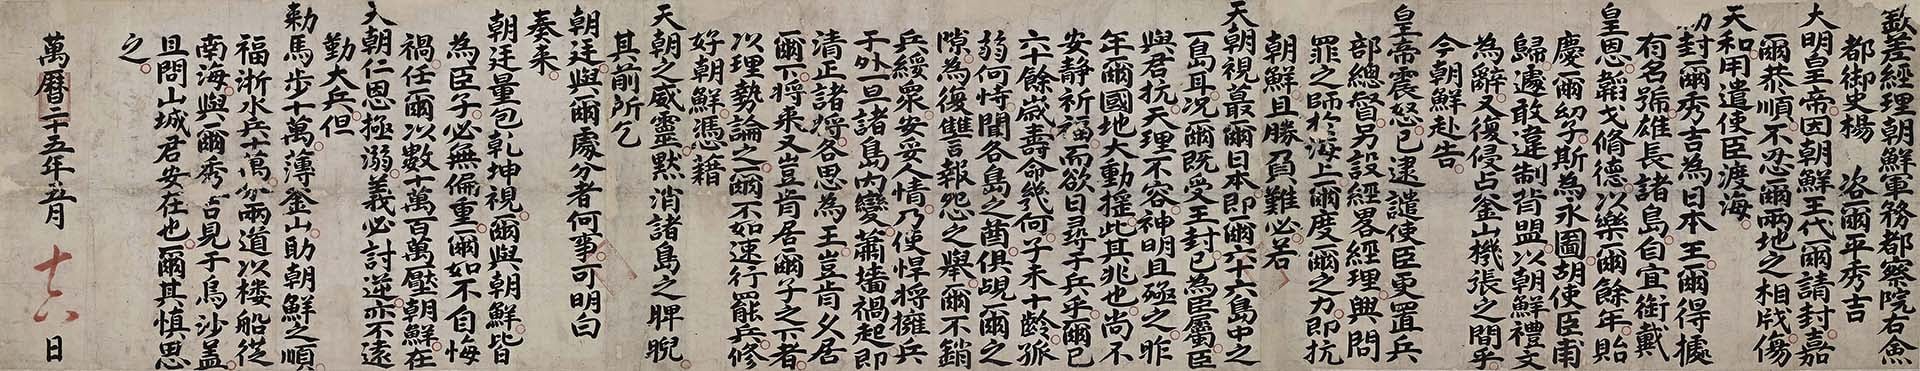 欽差經理朝鮮軍務都察院右僉
都御史楊 咨爾平秀吉
大明皇帝因朝鮮王代爾請封嘉
爾恭順不忍爾兩地之相戕傷
天和用遣使臣渡海
勑封爾秀吉為日本王爾得據
有名號雄長諸島自宜銜戴
皇恩韜戈脩德以樂爾餘年貽
慶爾幼子斯為永圖胡使臣甫
歸遽敢違制背盟以朝鮮禮文
為辭又復侵占釜山機張之間乎
今朝鮮赴告
皇帝震怒已逮譴使臣更置兵
部總督另設經畧經理興問
罪之師於海上爾度爾之力即抗
朝鮮且勝負難必若
天朝視蕞爾日本即爾六十六島中之
一島耳况爾既受王封已為臣屬臣
與君抗天理不容神明且殛之昨
年爾國地大動搖此其兆也尚不
安靜祈福而欲日尋于兵乎爾已
六十餘歲壽命幾何子未十齡孤
弱何恃聞各島之酋俱覘爾之
隙為復讐報怨之舉爾不銷
兵綏衆安妥人情乃使悍將擁兵
于外一旦諸島內變蕭墻禍起即
清正諸將各思為王豈肯久居
爾下將來又豈肯居爾子之下者
以理勢論之爾不如速行罷兵修
好朝鮮憑藉
天朝之威靈默消諸島之睥睨
其前所乞
朝廷與爾處分者何事可明白
奏來
朝廷量包乾坤視爾與朝鮮皆
為臣子必無偏重爾如不自悔
禍任爾以數十萬百萬壓朝鮮在
天朝仁恩極溺義必討逆亦不遠
勤大兵但
勑馬步十萬薄釜山助朝鮮之順
福浙水兵十萬分兩道以楼船從
南海與爾秀吉見于烏沙盖
且問山城君安在也爾其慎思
之
萬曆二十五年五月 十六 日